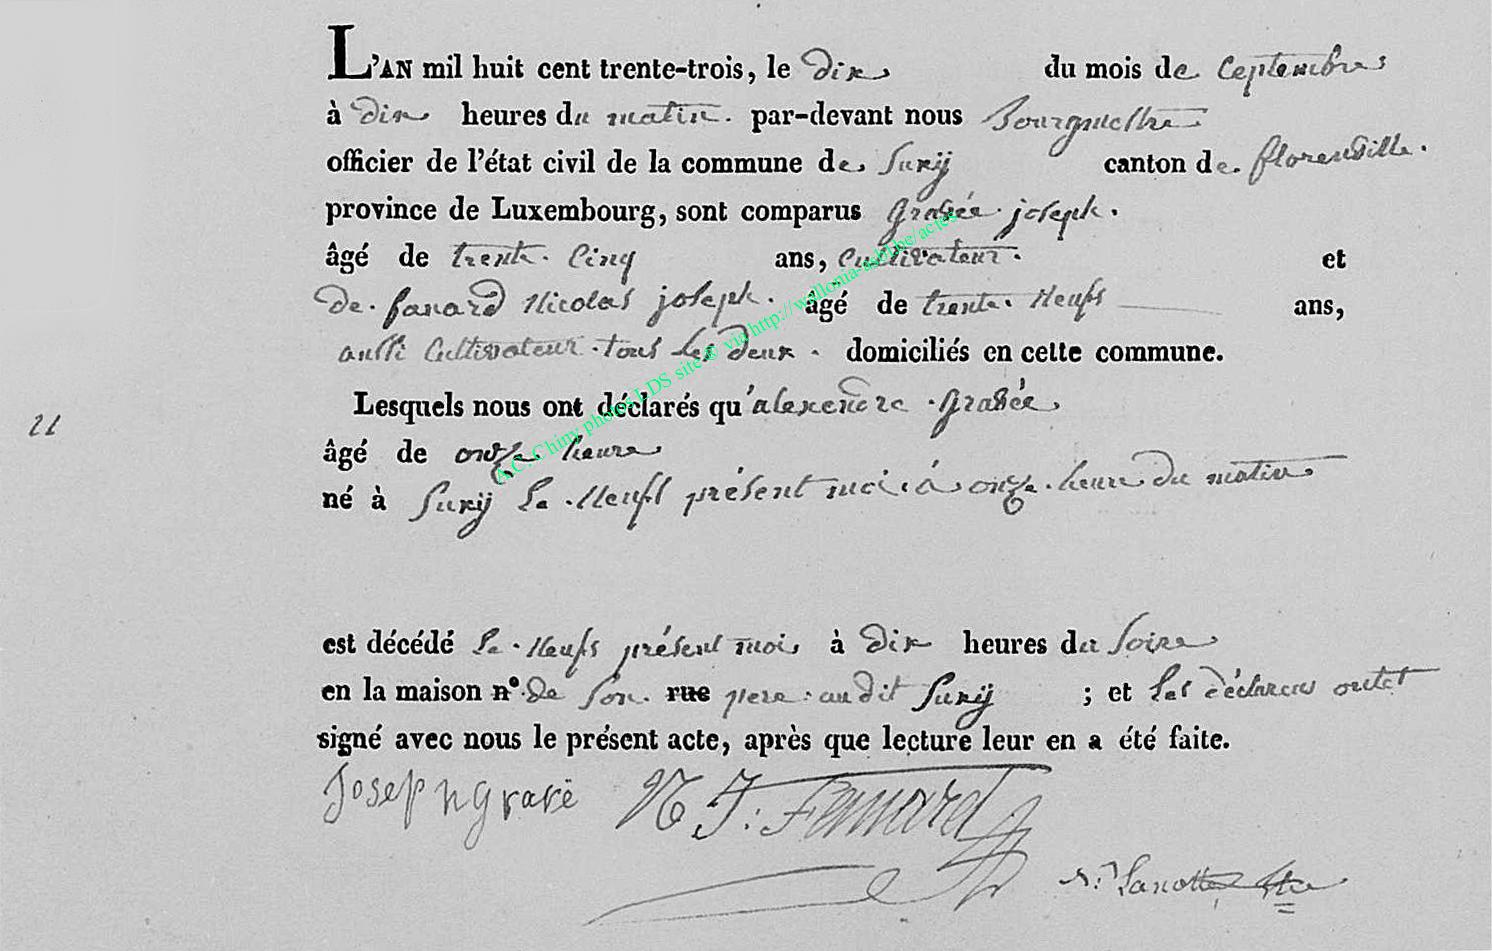 L'AN mil huit cent trente-trois, le dix du mois de Ceptembre
à dix heures du matin. par-devant nous Bourgmestre
officier de l'état civil de la commune de Suxÿ canton de florenville.
province de Luxembourg, sont comparus joseph.
âgé de trente. Cinq ans, Cultivateur. et
de. fanard Nicolas joseph. âgé de trente. Neufs ans,
aussi Cultivateur. tous les deux. domiciliés en cette commune.
Lesquels nous ont déclarés qu'alexendre
21
âgé de onze heure
né à Suxÿ Le. Neufs présent moi. á onze. heure du matin
est décédé Le. Neufs présent mois à dix heures du soire
en la maison n°. de son. rue pere. audit Suxÿ ; et Les ontet
signé avec nous le présent acte, après que lecture leur en a été faite.
Joseph N J: Fanard
Lanotte
A.C. Chiny photos LDS site® via http://wallonia-asbl.be/actes